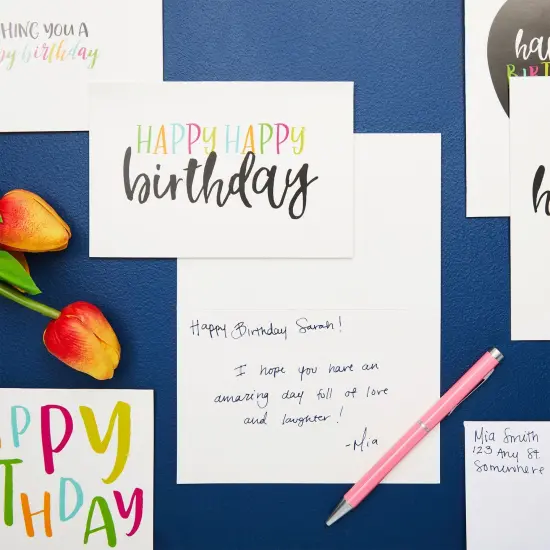 HING YOU A
py birthday
HAPPY HAPPY
birthday
Happy Birthday Sarah!
I hope you have an
amazing day full of love
and laughter!
-Mia
APPY
THDAY
ha
BIRT
h
Mia Smith
123 Any St.
Somewhere